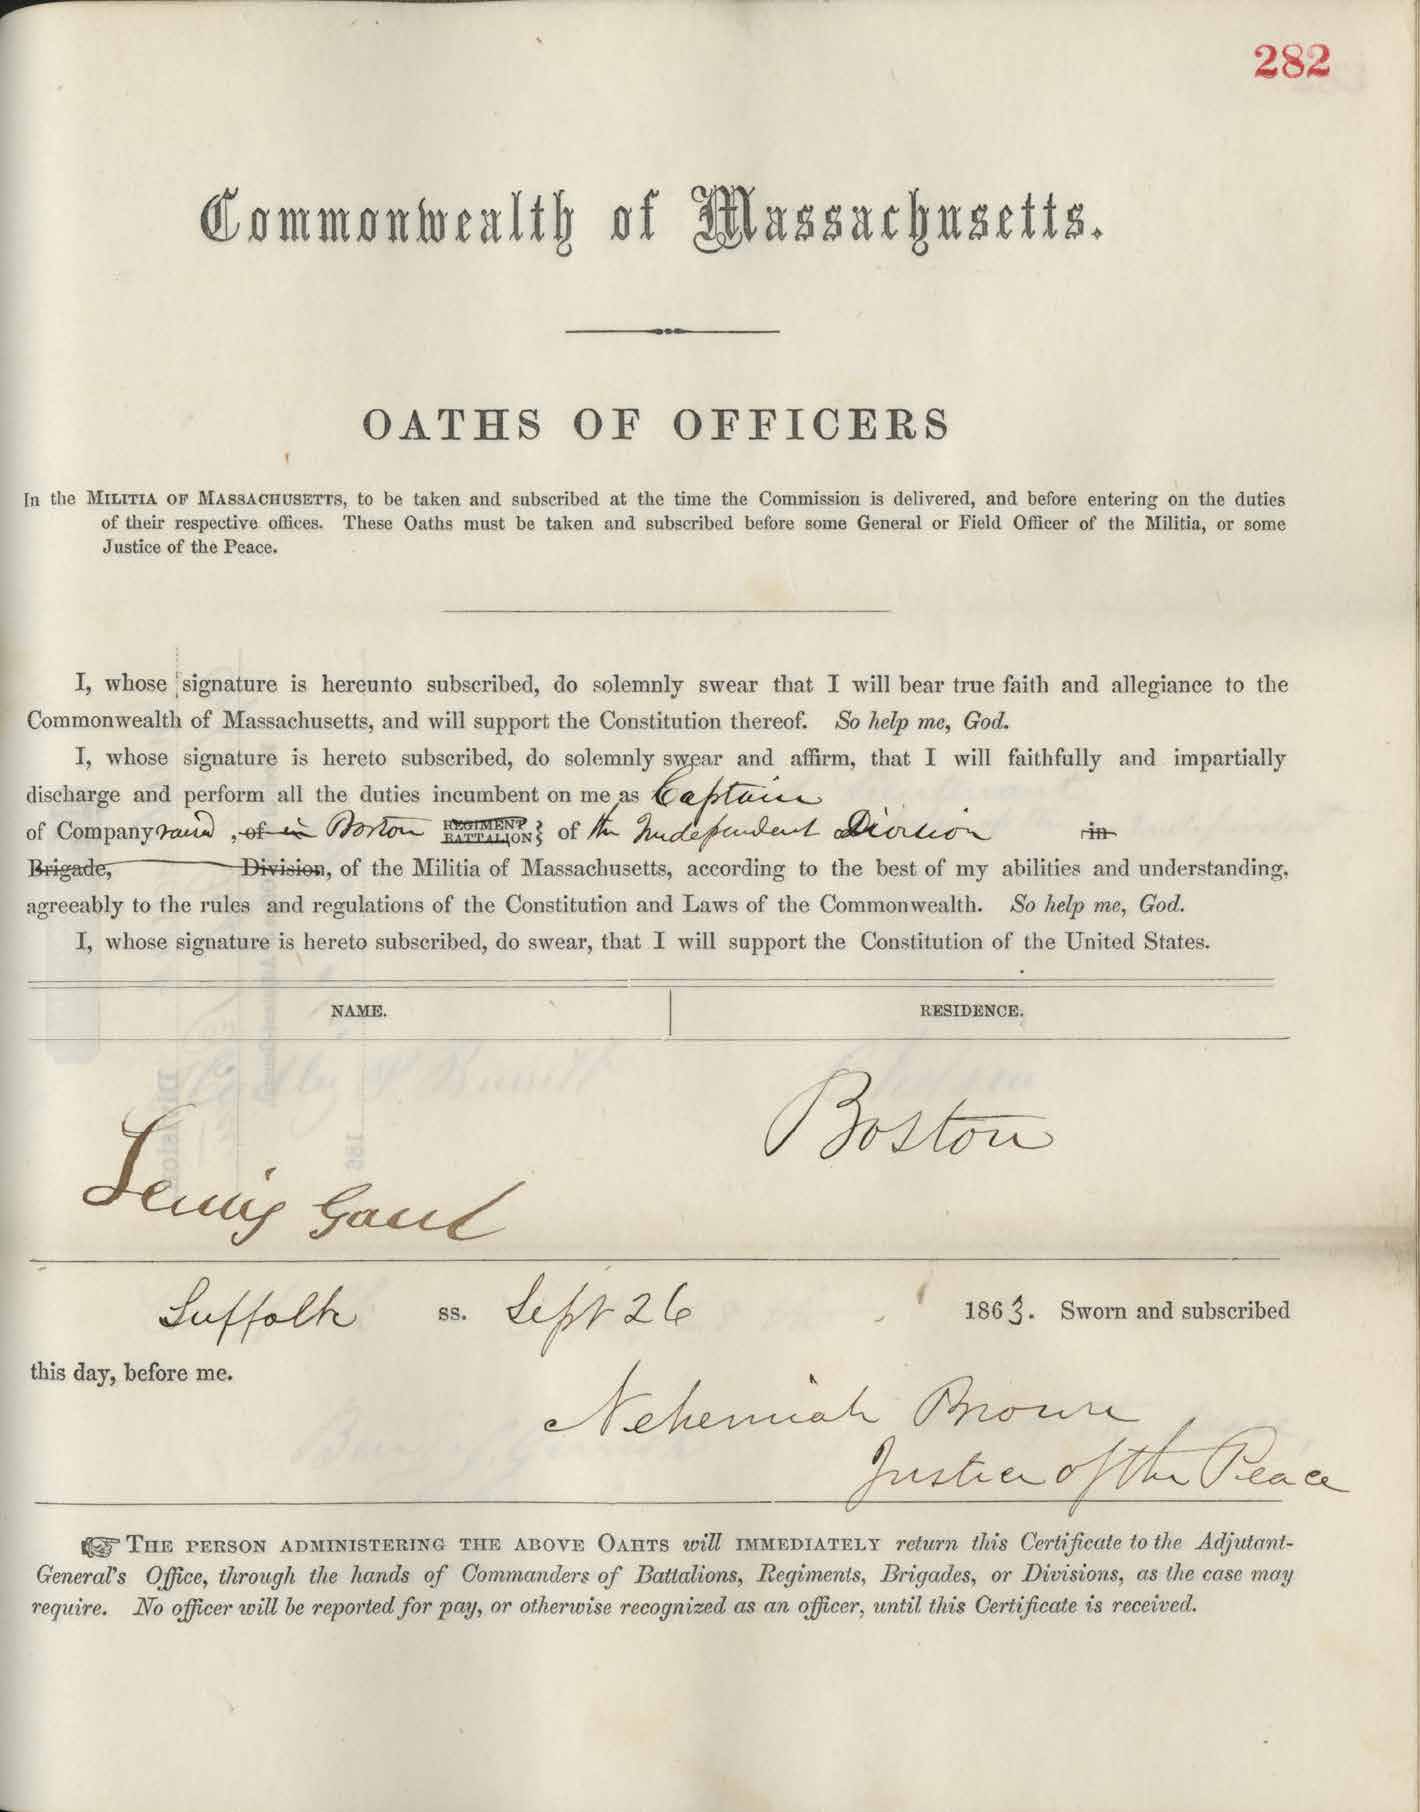 282
Commonwealth of Massachusetts.
OATHS OF OFFICERS
In the MILITIA OF MASSACHUSETTS, to be taken and subscribed at the time the Commission is delivered, and before entering on the duties
of their respective offices. These Oaths must be taken and subscribed before some General or Field Officer of the Militia, or some
Justice of the Peace.
I, whose signature is hereunto subscribed, do solemnly swear that I will bear true faith and allegiance to the
Commonwealth of Massachusetts, and will support the Constitution thereof. So help me, God.
I, whose signature is hereto subscribed, do solemnly swear and affirm, that I will faithfully and impartially
discharge and perform all the duties incumbent on me as Captain
of Company raised , of in Boston REGIMENT BATTALION } of the Independent Division in
Brigade, Division, of the Militia of Massachusetts, according to the best of my abilities and understanding,
agreeably to the rules and regulations of the Constitution and Laws of the Commonwealth. So help me, God.
I, whose signature is hereto subscribed, do swear, that I will support the Constitution of the United States.
NAME. RESIDENCE.
Boston
Lewis Gaul
Suffolk ss. Sept 26 1863. Sworn and subscribed
this day, before me.
Nehemiah Brown
Justice of the Peace
☞ THE PERSON ADMINISTERING THE ABOVE OAHTS will IMMEDIATELY return this Certificate to the Adjutant-
General's Office, through the hands of Commanders of Battalions, Regiments, Brigades, or Divisions, as the case may
require. No officer will be reported for pay, or otherwise recognized as an officer, until this Certificate is received.